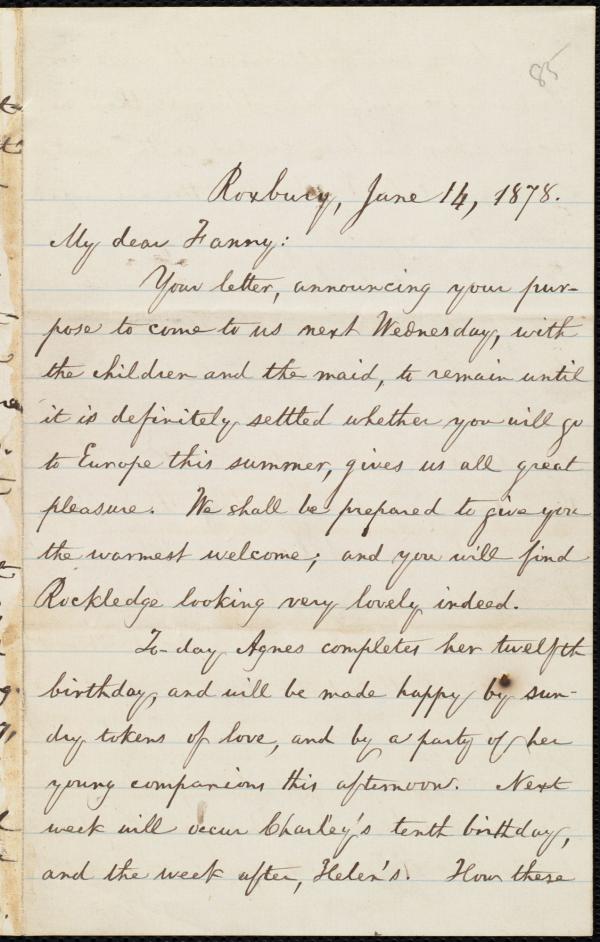 85
Roxbury, June 14, 1878.
My dear Fanny:
Your letter, announcing your pur-
pose to come to us next Wednesday, with
the children and the maid, to remain until
it is definitely settled whether you will go
to Europe this summer, gives us all great
pleasure. We shall be prepared to give you
the warmest welcome; and you will find
Rockledge looking very lovely indeed.
To-day Agnes completes her twelfth
birthday, and will be made happy by sun-
dry tokens of love, and by a party of her
young companions this afternoon. Next
week will occur Charley's tenth birthday,
and the week after, Helen's. How these